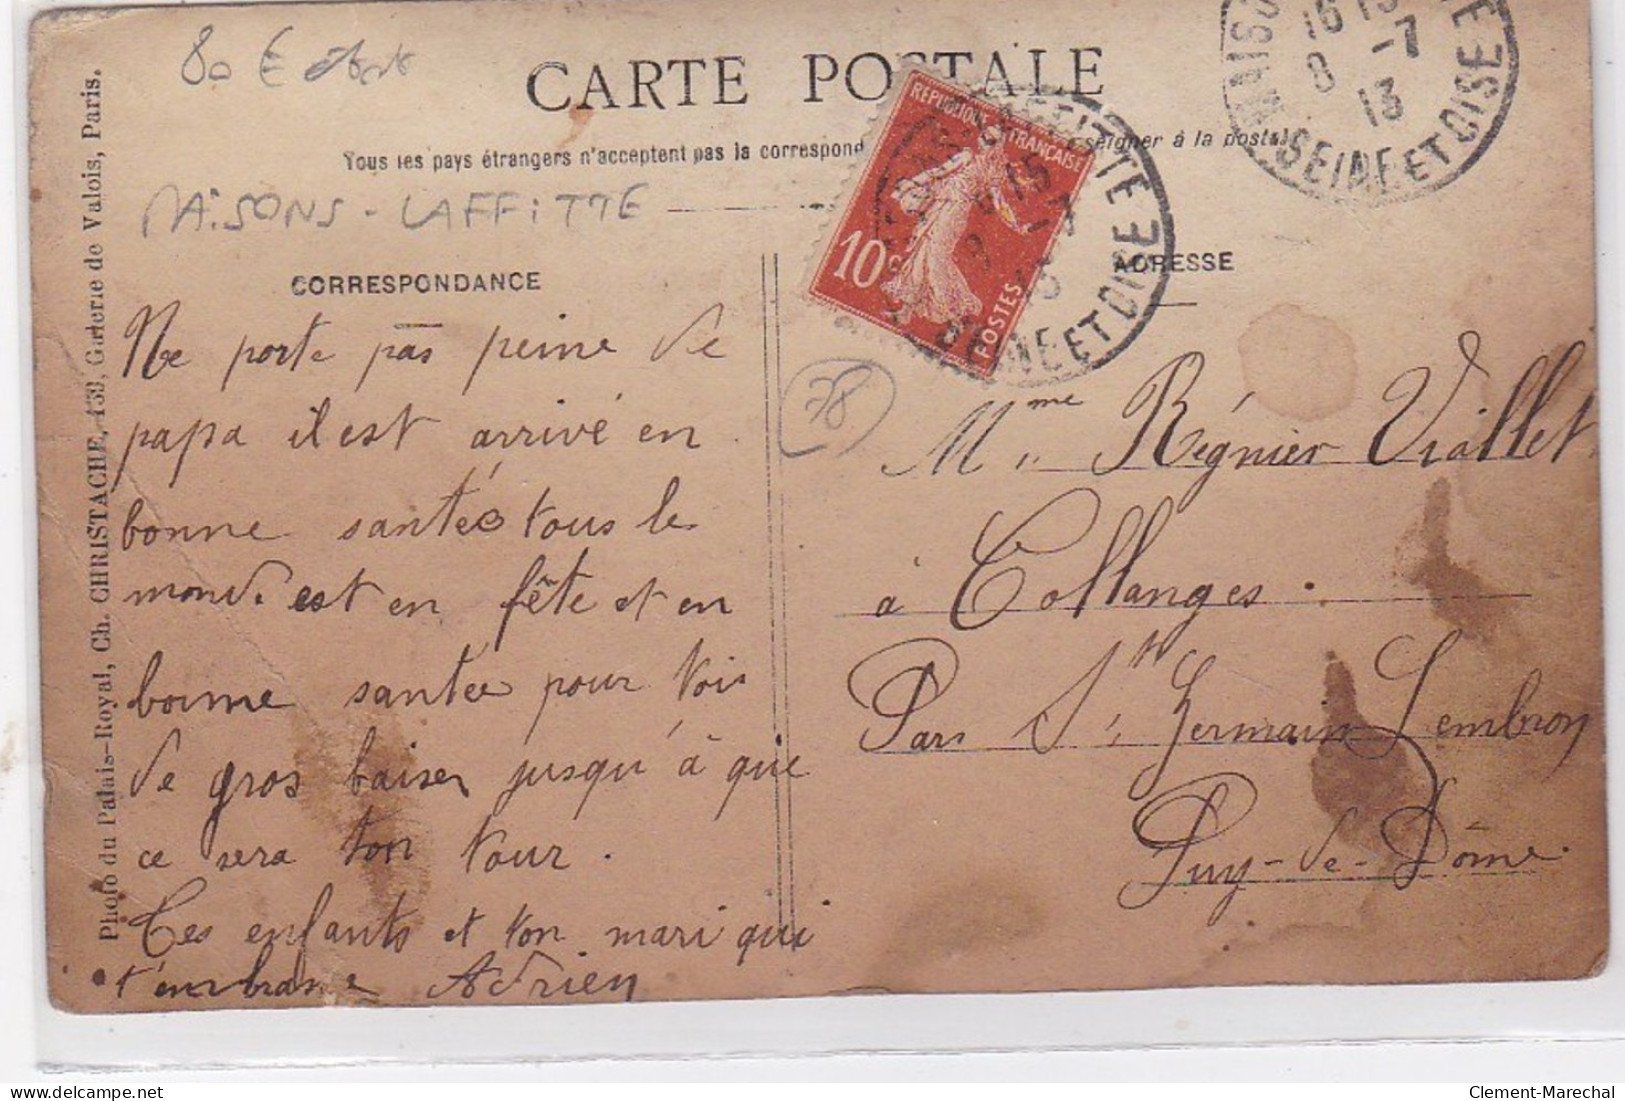 80 €
CARTE POSTALE
Tous les pays étrangers n'acceptent pas la correspond
seigner à la postale
MAISONS-LAFFITTE
CORRESPONDANCE
Ne porte pas peine de
papa il est arrivé en
bonne santée tous le
monde est en fête et en
bonne santée pour toi
de gros baiser jusqu'à que
ce sera ton tour.
Tes enfants et ton mari qui
t'embrasse Adrien
RÉPUBLIQUE FRANÇAISE
10c
POSTES
FFITTE
SEINE ET OISE
MAISO
E
16 15
8 -7
13
SEINE ET OISE
ADRESSE
78
Mme Régnier Viallet
à Collanges.
Par St Germain Lembron
Puy-de-Dôme.
Photo du Palais-Royal, Ch. CHRISTACHE, 139, Galerie de Valois, Paris.
Clement-Marechal